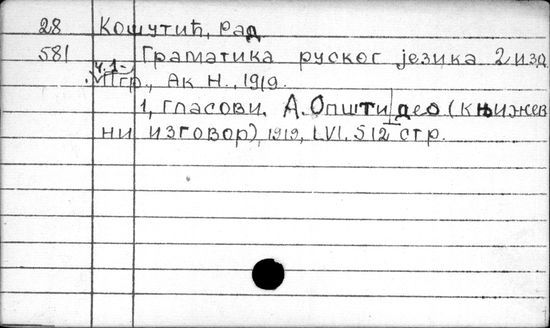 28 Кошутић, Рад.
581 Граматика руског језика 2 изд.
ч. 1-
Пгр., Ак. Н., 1919.
1, гласови. А. Општи део (књижев
ни изговор), 1919, LVI, 512 стр.